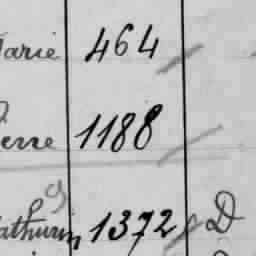 arie 464
erre 1188
athurin 1372 D